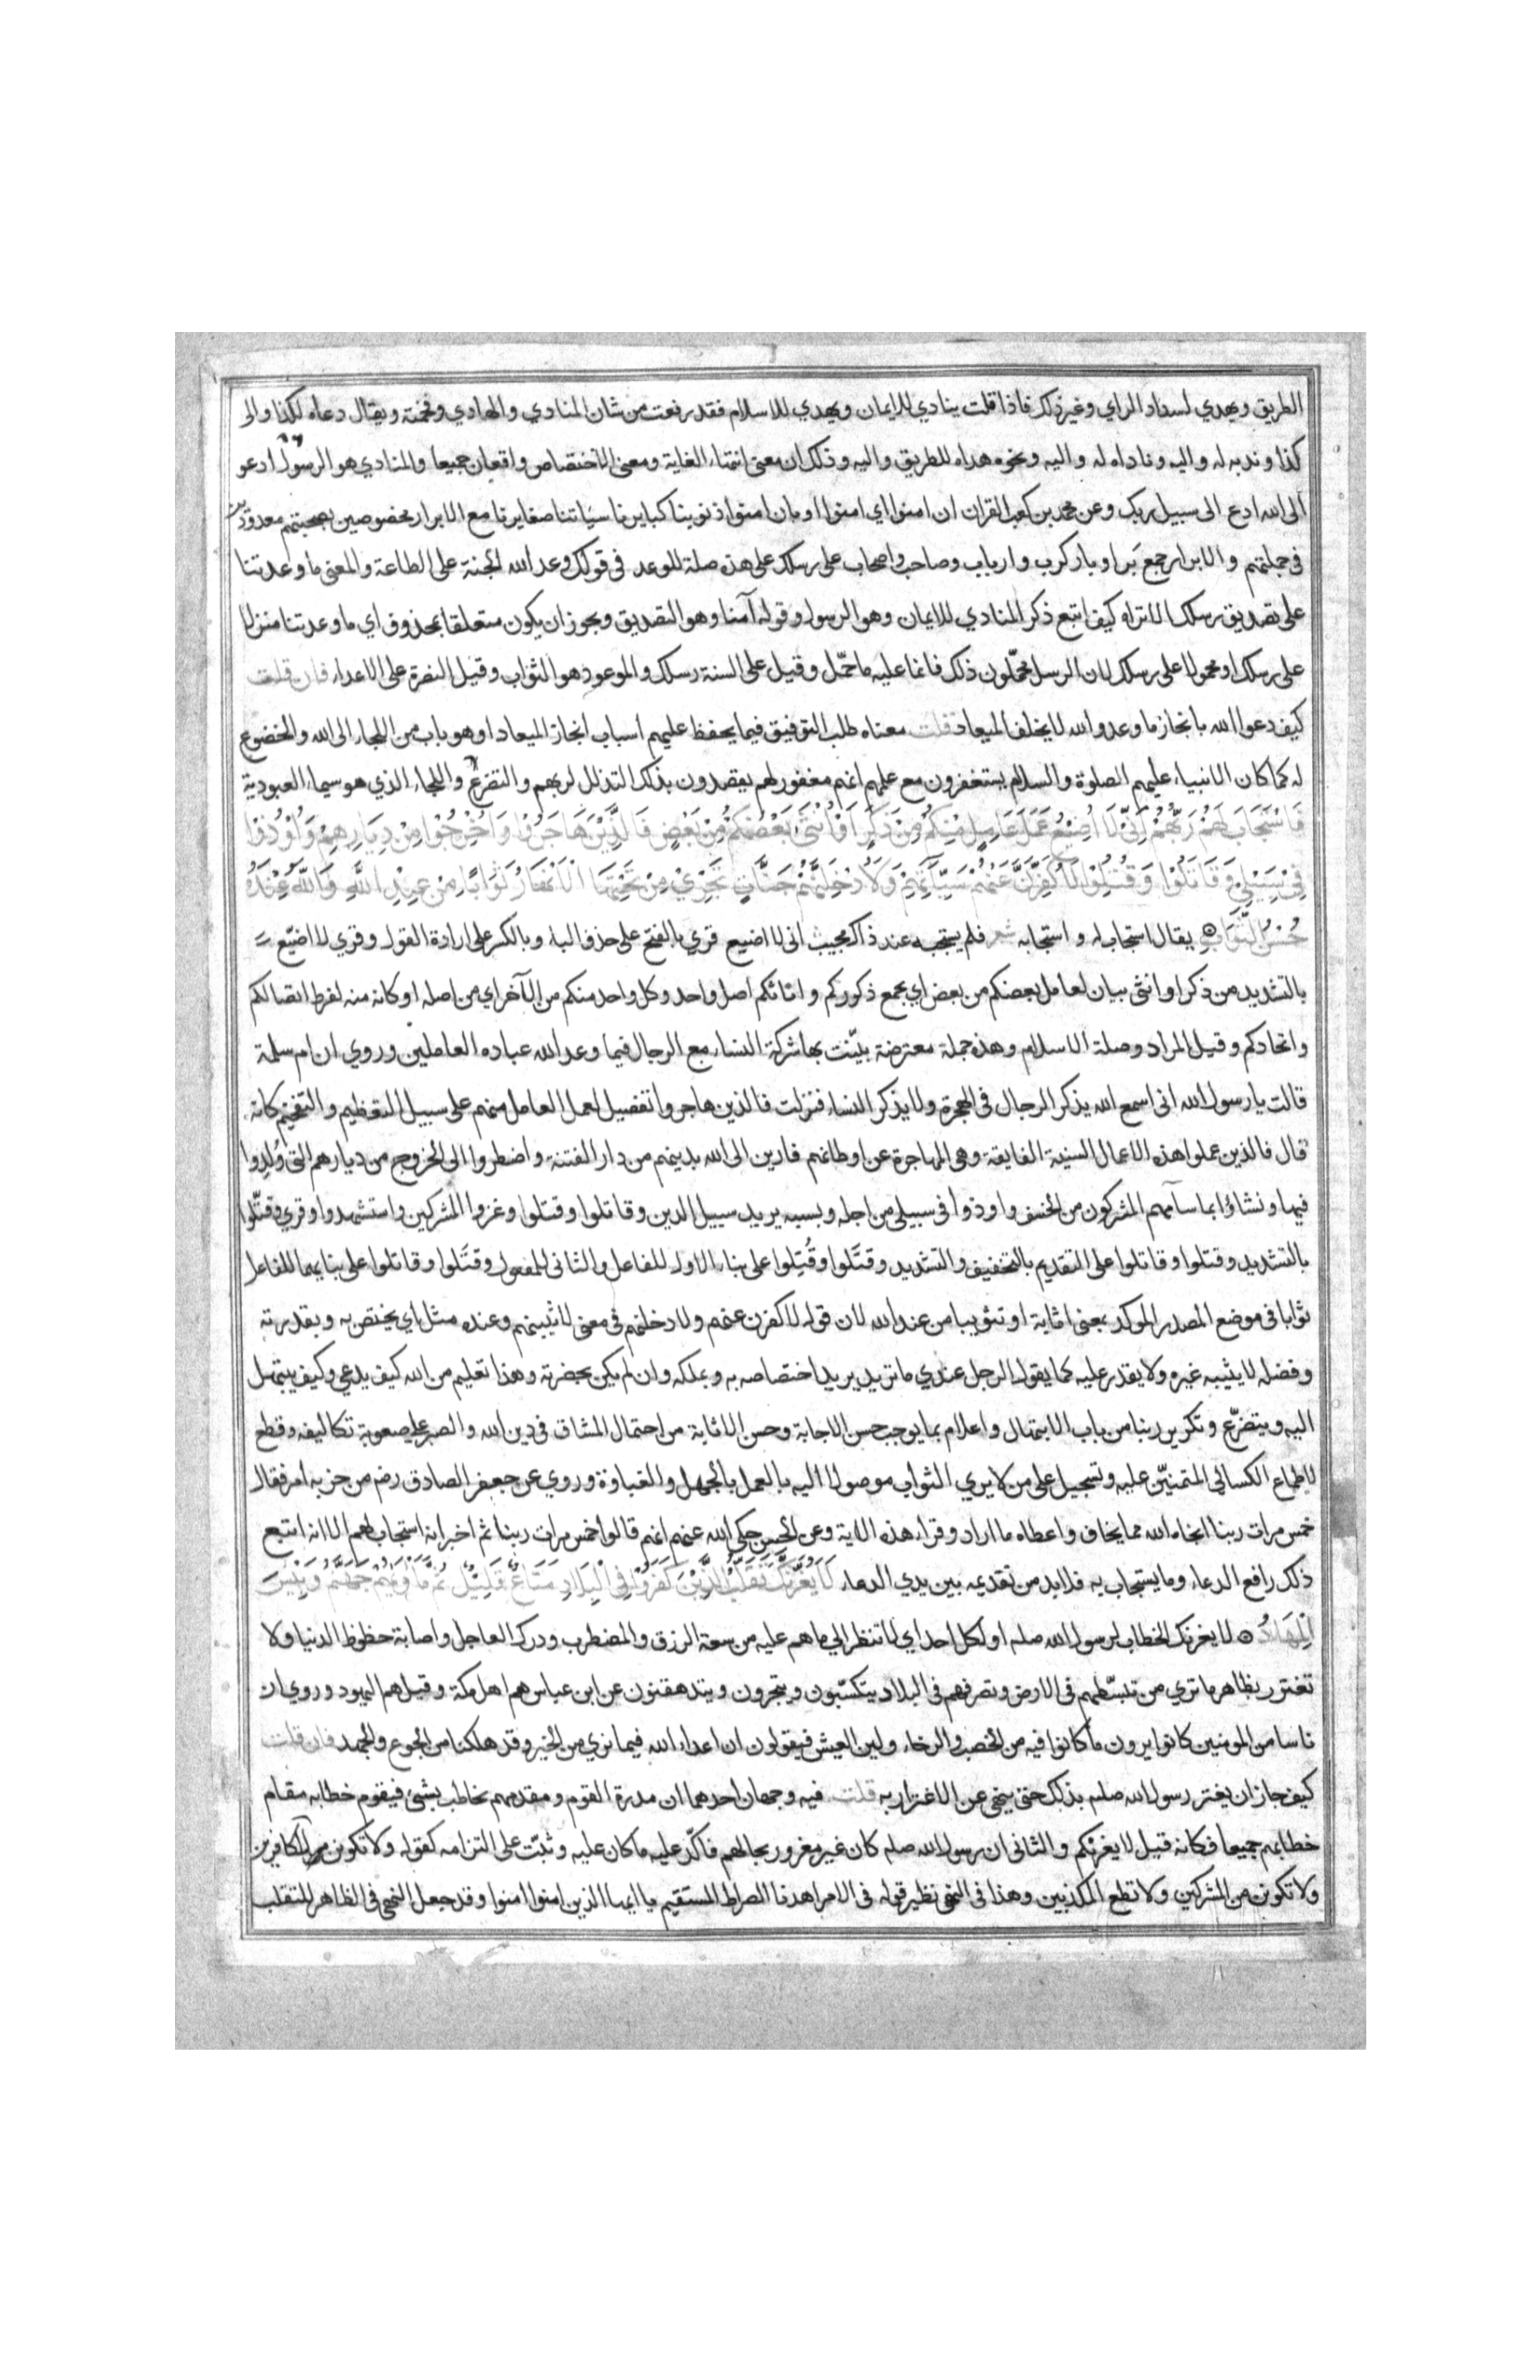 الطريق ويهدي لسداد الراي وغير ذلك فاذا قلت ينادي للايمان ويهدي للاسلام فقد رفعت من شان المنادي والهادي وفخمته ويقال دعاه لكذا والى
كذا وندبه له واليه وناداه له واليه ونحوه هداه للطريق واليه وذلك ان معنى انتهاء الغاية ومعنى الاختصاص واقعان جميعا والمنادي هو الرسول ادعو
الى الله ادع الى سبيل ربك وعن محمد بن كعب القران ان امنوا اي امنوا او بان امنوا ذنوبنا كبايرنا سيّاتنا صغايرنا مع الابرار مخصوصين بصحبتهم معدودين
فى جملتهم والابرار جمع بَر او بار كرب وارباب وصاحب واصحاب على رسلك على هذه صلة للوعد فى قولك وعد الله الجنة على الطاعة والمعنى ما وعدتنا
على تصديق رسلك الا تراه كيف اتبع ذكر المنادي للايمان وهو الرسول وقوله آمنا وهو التصديق ويجوز ان يكون متعلقا بمحذوف اي ما وعدتنا منزلا
على رسلك او محمولا على رسلك لان الرسل محمّلون ذلك فانما عليه ما حمّل وقيل على السنة رسلك والموعود هو الثواب وقيل النصرة على الاعداء فان قلت
كيف دعوا الله بانجاز ما وعد والله لا يخلف الميعاد قلت معناه طلب التوفيق فيما يحفظ عليهم اسباب انجاز الميعاد او هو باب من اللجاء الى الله والخضوع
له كما كان الانبياء عليهم الصلوة والسلام يستغفرون مع علمهم انهم مغفور لهم يقصدون بذلك التذلل لربهم والتضرع واللجاء الذي هو سيماء العبودية
فَاسْتَجَابَ لَهُمْ رَبُّهُمْ اَنِّي لَا اُضِيْعُ عَمَلَ عَامِلٍ مِنْكُمْ مِنْ ذَكَرٍ اَوْ اُنْثَى بَعْضُكُمْ مِنْ بَعْضٍ فَالَّذِيْنَ هَاجَرُوْا وَاُخْرِجُوْا مِنْ دِيَارِهِمْ وَاُوْذُوْا
فِيْ سَبِيْلِيْ وَقَاتَلُوْا وَقُتِلُوْا لَاُكَفِّرَنَّ عَنْهُمْ سَيِّاٰتِهِمْ وَلَاُدْخِلَنَّهُمْ جَنَّاتٍ تَجْرِيْ مِنْ تَحْتِهَا الْاَنْهَارُ ثَوَابًا مِنْ عِنْدِ اللّٰهِ وَاللّٰهُ عِنْدَهُ
حُسْنُ الثَّوَابِ يقال استجاب له واستجابه شعر فلم يستجبه عند ذاك مجيب انى لا اضيع قري بالفتح على حذف الباء وبالكسر على ارادة القول وقري لا اضيّع
بالتشديد من ذكر او انثى بيان لعامل بعضكم من بعض اي يجمع ذكوركم واناثكم اصل واحد وكل واحد منكم من الآخر اي من اصله او كانه منه لفرط اتصالكم
واتحادكم وقيل المراد وصلة الاسلام وهذه جملة معترضة بيّنت بها شركة النساء مع الرجال فيما وعد الله عباده العاملين وروي ان ام سلمة
قالت يا رسول الله انى اسمع الله يذكر الرجال فى الهجرة ولا يذكر النساء فنزلت فالذين هاجروا تفصيل لعمل العامل منهم على سبيل التعظيم والتفخيم كانه
قال فالذين عملوا هذه الاعمال السنية الفايقة وهى المهاجرة عن اوطانهم فارين الى الله بدينهم من دار الفتنة واضطروا الى الخروج من ديارهم التى وُلدوا
فيها ونشاؤا بما سامهم المشركون من الخسف واوذوا فى سبيلى من اجله وبسببه يريد سبيل الدين وقاتلوا وقتلوا وغزوا المشركين واستشهدوا وقري وقتّلوا
بالتشديد وقتلوا وقاتلوا على التقديم بالتخفيف والتشديد وقتَلوا وقُتِلوا على بناء الاول للفاعل والثانى للمفعول وقتَلوا وقاتلوا على بنايهما للفاعل
ثوابا فى موضع المصدر الموكد بمعنى اثابة او تثويبا من عند الله لان قوله لاكفرن عنهم ولادخلنهم فى معنى لاثيبنهم وعنده مثل اي يختص به وبقدرته
وفضله لا يثيبه غيره ولا يقدر عليه كما يقول الرجل عندي ما تريد يريد اختصاصه به وبملكه وان لم يكن بحضرته وهذا تعليم من الله كيف يدعى وكيف يبتهل
اليه ويتضرّع وتكرير ربنا من باب الابتهال واعلام بما يوجب حسن الاجابة وحسن الاثابة من احتمال المشاق فى دين الله والصبر على صعوبة تكاليفه وقطع
لاطماع الكسالى المتمنيّن عليه وتسجيل على من لا يرى الثواب موصولا اليه بالعمل بالجهل والغباوة وروي عن جعفر الصادق رضه من حزبه امر فقال
خمس مرات ربنا انجاه الله مما يخاف واعطاه ما اراد وقراء هذه الاية وعن الحسن حكى الله عنهم انهم قالوا خمس مرات ربنا ثم اخبر انه استجاب لهم الا انه اتبع
ذلك رافع الدعاء وما يستجاب به فلا بد من تقديمه بين يدي الدعاء لَا يَغُرَّنَّكَ تَقَلُّبُ الَّذِيْنَ كَفَرُوْا فِي الْبِلَادِ مَتَاعٌ قَلِيْلٌ ثُمَّ مَأْوٰىهُمْ جَهَنَّمُ وَبِئْسَ
الْمِهَادُ لا يغرنك الخطاب لرسول الله صلم او لكل احد اي لا تنظر الى ما هم عليه من سعة الرزق والمضطرب ودرك العاجل واصابة حظوظ الدنيا ولا
تغترر بظاهر ما تري من تبسّطهم فى الارض وتصرفهم فى البلاد يتكسّبون ويتجرون ويتدهقنون عن ابن عباس هم اهل مكة وقيل هم اليهود وروي ان
ناسا من المومنين كانوا يرون ما كانوا فيه من الخصب والرخاء ولين العيش فيقولون ان اعداء الله فيما نري من الخير وقد هلكنا من الجوع والجهد فان قلت
كيف جاز ان يغتر رسول الله صلم بذلك حتى ينهى عن الاغترار به قلت فيه وجهان احدهما ان مدرة القوم ومقدمهم يخاطب بشئ فيقوم خطابه مقام
خطابهم جميعا فكانه قيل لا يغرنكم والثانى ان رسول الله صلم كان غير مغرور بحالهم فاكّد عليه ما كان عليه وثبّت على التزامه كقوله ولا تكونن من الكافرين
ولا تكونن من المشركين ولا تطع المكذبين وهذا فى النهى نظير قوله فى الامر اهدنا الصراط المستقيم يا ايها الذين امنوا امنوا وقد جعل النهى فى الظاهر للتقلب